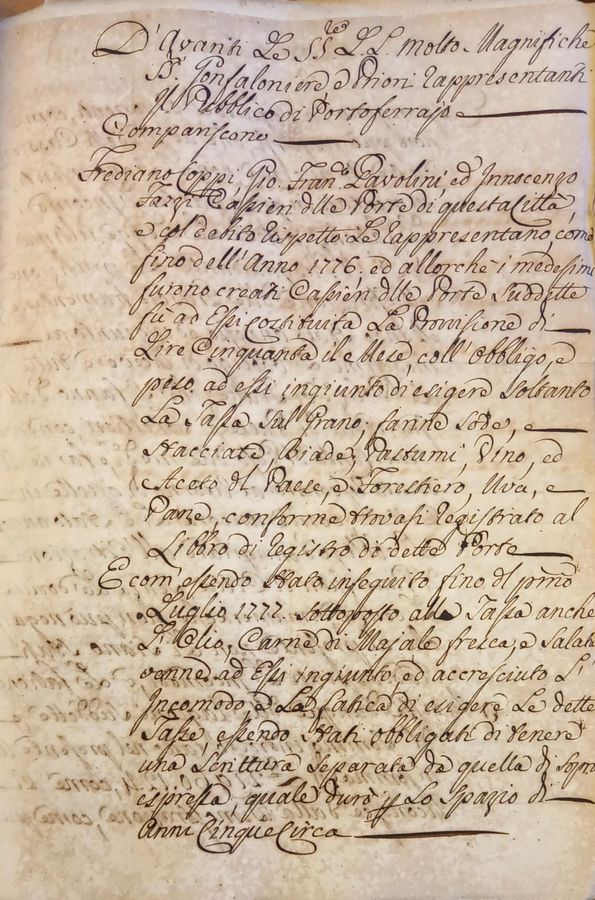 D'Avanti Le SS.rie L.L. Molto Magnifiche
SS.ri Gonfaloniere e Priori rappresentanti
Il Pubblico di Portoferrajo
Compariscono
Frediano Coppi, Gio. Fran.co Pavolini, ed Innocenzo
Fazzi Cassieri dlle Porte di questa Città
e col debito rispetto Le rappresentano, come
fino dell'Anno 1776. ed allorchè i medesimi
furono creati Cassieri dlle Porte suddette
fù ad Essi Costituita La Provisione di
Lire Cinquanta il Mese coll'Obbligo, e
peso ad essi ingiunto di esigere soltanto
La Tassa sul Grano, farine sode, e
stacciate, Biade, Pastumi, Vino, ed
Aceto dl Paese, e Forestiero, Uva, e
Pane, conforme trovasi registrato al
Libbro di registro di dette Porte
E com'essendo stato in seguito fino dl primo
Luglio 1777. sottoposto alle Tasse anche
L'Olio, Carne di Majale fresca, e salata
venne ad Essi ingiunto, ed accresciuto L'
Incomodo, e La fatica di esigere Le dette
Tasse, essendo stati obbligati di tenere
una scrittura separata da quella di sopra
espressa, quale durò p Lo spazio di
Anni Cinque Circa